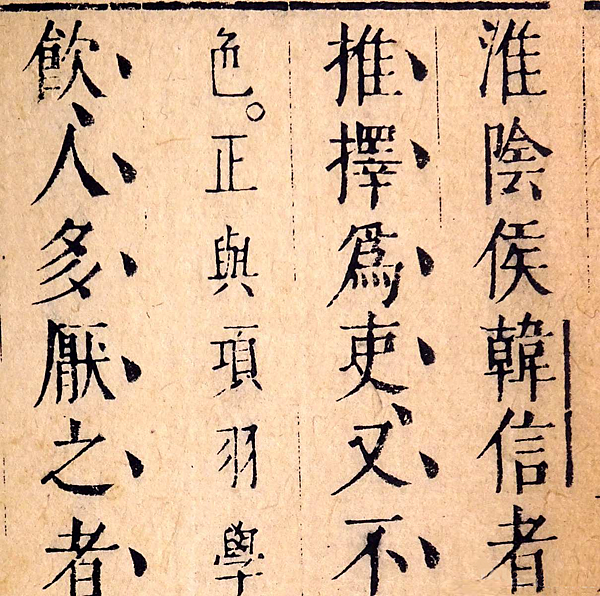 淮陰侯韓信者
推擇爲吏又不
色。正與項羽學
飲人多厭之者